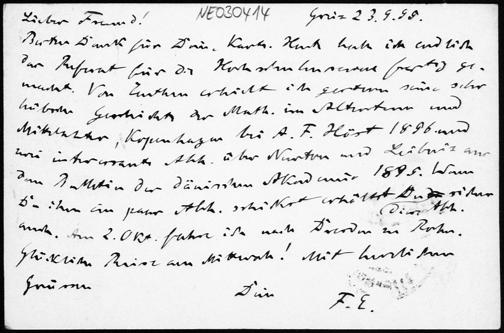 NE030414
Lieber Freund! Graz 23.9.98.
Besten Dank für Deine Karte. Heute habe ich endlich
das Referat für die Hochschulnachr. (fertig) ge-
macht. Von Zeuthen erhielt ich gestern seine sehr
hübsche Geschichte der Math. im Altertum und
Mittelalter, Kopenhagen bei A. F. Höst 1896 und
zwei interessante Abh. über Newton und Leibniz aus
dem Bulletin der dänischen Akademie 1895. Wenn
Du ihm ein paar Abh. schickst erhältst Du sicher
diese Abh.
auch. Am 2. Okt. fahre ich nach Dresden zu Rohn.
Glückliche Reise am Mittwoch! Mit herzlichsten
Grüssen
Dein
F. E.